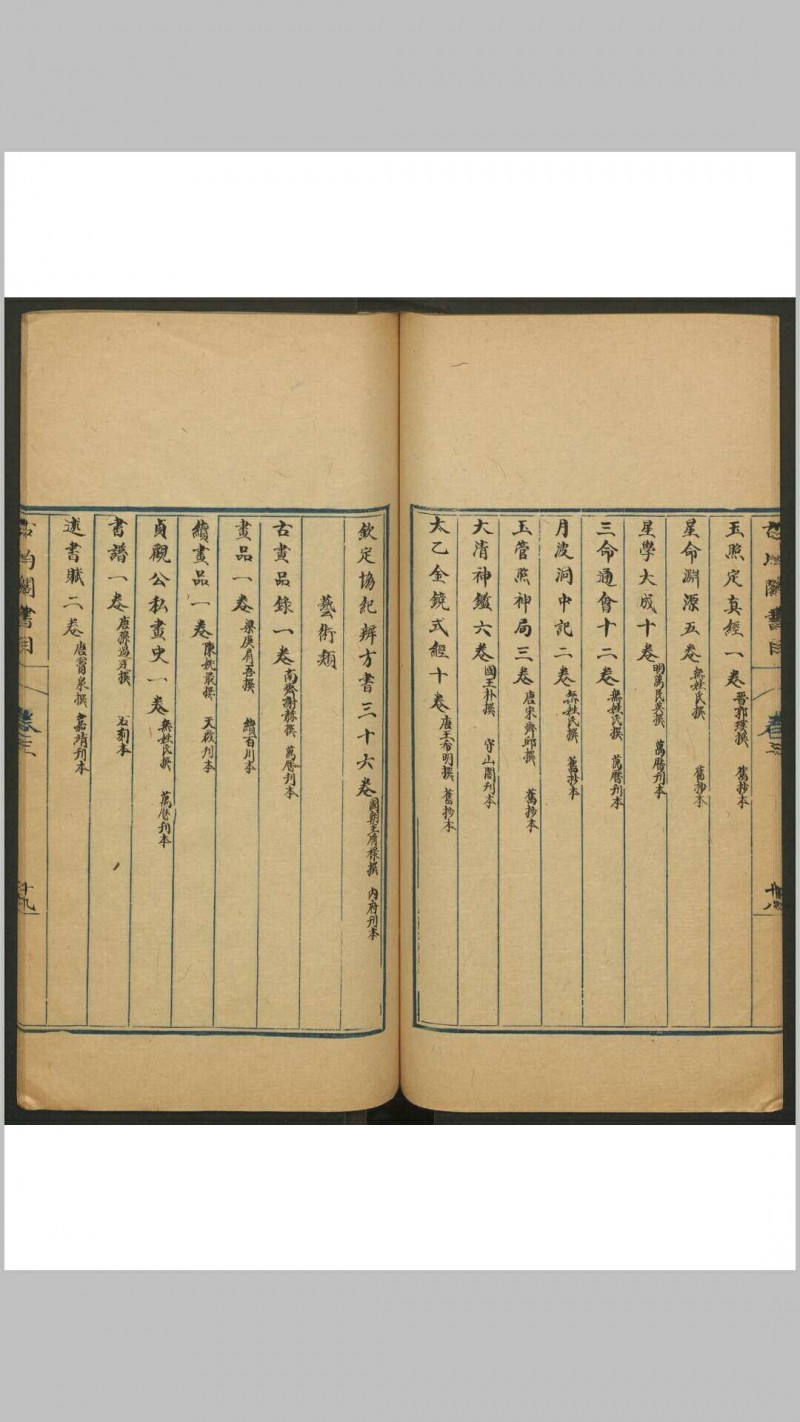 玉照定真經一卷 晉郭璞撰 舊抄本
星命淵源五卷 無姓氏撰 舊抄本
星學大成十卷 明萬民英撰 萬曆刊本
三命通會十二卷 無姓氏撰 萬曆刊本
月波洞中記二卷 無姓氏撰 舊抄本
玉管照神局三卷 唐宋齊邱撰 舊抄本
太清神鑑六卷 國王朴撰 守山閣刊本
太乙金鏡式經十卷 唐王希明撰 舊抄本
欽定協紀辨方書三十六卷 國朝 撰 內府刊本
藝術類
古畫品錄一卷 南齊謝赫撰 萬曆刊本
畫品一卷 梁庾肩吾撰 續百川本
續畫品一卷 陳姚最撰 天啟刊本
貞觀公私畫史一卷 無姓氏撰 萬曆刊本
書譜一卷 唐孫過庭撰 石刻本
述書賦二卷 唐竇泉撰 嘉靖刊本
書目
卷三
十九